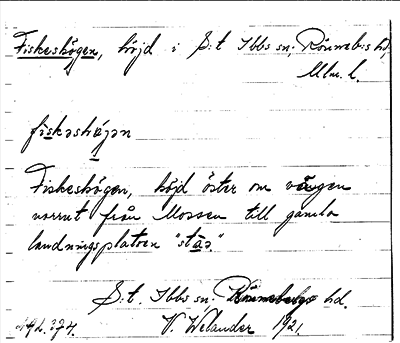 Fiskeshögen, höjd i S:t Ibbs sn, Rönnebs hd,
Mlm. l.
fiskashøjan
Fiskeshögen, höjd öster om vägen
norrut från Mossen till gamla
landningsplatsen "stäs".
S:t. Ibbs sn. Rönnebergs hd.
V. Welander 1921.